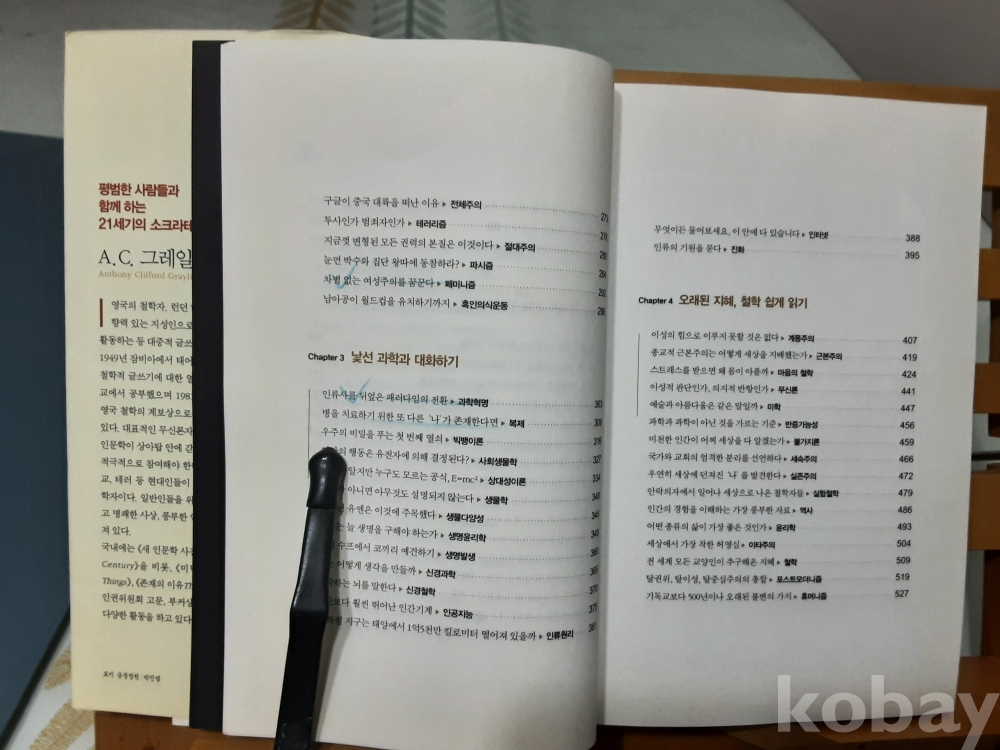 평범한 사람들과
함께 하는
21세기의 소크라테
A.C. 그레일
Anthony Clifford Grayl
영국의 철학자. 런던
향력 있는 지성인으로
활동하는 등 대중적 글쓰
1949년 잠비아에서 태어
철학적 글쓰기에 대한 열
교에서 공부했으며 198
영국 철학의 계보상으로
있다. 대표적인 무신론자
인문학이 상아탑 안에 간
적극적으로 참여해야 한
교, 테러 등 현대인들이
학자이다. 일반인들을 위
고 명쾌한 사상, 풍부한 인
져 있다.
국내에는 《새 인문학 사
Century》을 비롯, 《미
Things》, 《존재의 이유
인권위원회 고문, 부커상
다양한 활동을 하고 있다
표지 공중정원 박진범
구글이 중국 대륙을 떠난 이유 ▶ 전체주의
투사인가 범죄자인가 ▶ 테러리즘
지금껏 변형된 모든 권력의 본질은 이것이다 ▶ 절대주의
눈먼 박수와 집단 왕따에 동참하라? ▶ 파시즘 284
차별 없는 여성주의를 꿈꾼다 ▶ 페미니즘 292
남아공이 월드컵을 유치하기까지 ▶ 흑인의식운동 298
Chapter 3 낯선 과학과 대화하기
인류사를 뒤엎은 패러다임의 전환 ▶ 과학혁명 303
병을 치료하기 위한 또 다른 '나'가 존재한다면 ▶ 복제 309
우주의 비밀을 푸는 첫 번째 열쇠 ▶ 빅뱅이론 316
의 행동은 유전자에 의해 결정된다? ▶ 사회생물학 327
알지만 누구도 모르는 공식, E=mc² ▶ 상대성이론 334
아니면 아무것도 설명되지 않는다 ▶ 생물학 340
유엔은 이것에 주목했다 ▶ 생물다양성 345
는 늘 생명을 구해야 하는가 ▶ 생명윤리학
수프에서 코끼리 예견하기 ▶ 생명발생 360
어떻게 생각을 만들까 ▶ 신경과학 365
하는 뇌를 말한다 ▶ 신경철학 370
보다 훨씬 뛰어난 인간기계 ▶ 인공지능 375
지구는 태양에서 1억5천만 킬로미터 떨어져 있을까 ▶ 인류원리 381
무엇이든 물어보세요, 이 안에 다 있습니다 ▶ 인터넷 388
인류의 기원을 묻다 ▶ 진화 395
Chapter 4 오래된 지혜, 철학 쉽게 읽기
이성의 힘으로 이루지 못할 것은 없다 ▶ 계몽주의 407
종교적 근본주의는 어떻게 세상을 지배했는가 ▶ 근본주의 419
스트레스를 받으면 왜 몸이 아플까 ▶ 마음의 철학 424
이성적 판단인가, 의지적 반항인가 ▶ 무신론 441
예술과 아름다움은 같은 말일까 ▶ 미학 447
과학과 과학이 아닌 것을 가르는 기준 ▶ 반증가능성 456
미천한 인간이 어찌 세상을 다 알겠는가 ▶ 불가지론 459
국가와 교회의 엄격한 분리를 선언하다 ▶ 세속주의 466
우연히 세상에 던져진 '나'를 발견한다 ▶ 실존주의 472
안락의자에서 일어나 세상으로 나온 철학자들 ▶ 실험철학 479
인간의 경험을 이해하는 가장 풍부한 자료 ▶ 역사 486
어떤 종류의 삶이 가장 좋은 것인가 ▶ 윤리학 493
세상에서 가장 착한 허영심 ▶ 이타주의 504
전 세계 모든 교양인이 추구해온 지혜 ▶ 철학 509
탈권위, 탈이성, 탈중심주의의 총합 ▶ 포스트모더니즘 519
기독교보다 500년이나 오래된 불변의 가치 ▶ 휴머니즘 527
kobay